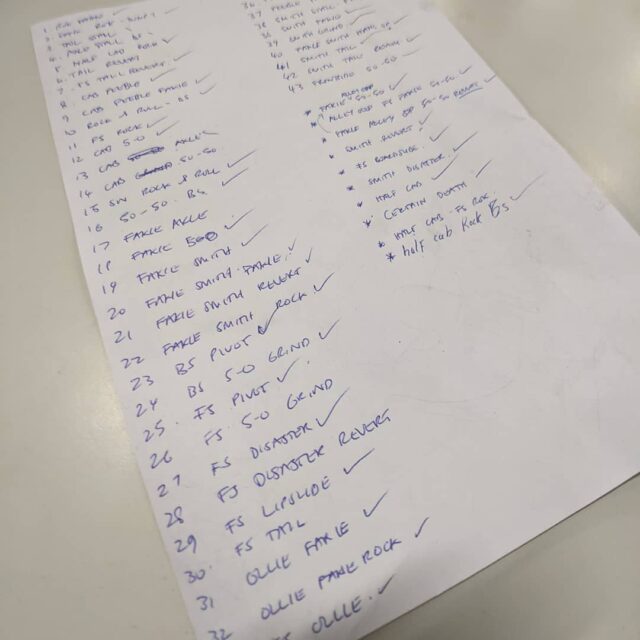 1
2
3 TAIL STALL
4 AXLE STALL BS ✓
5 HALF CAB ROCK ✓
6 TAIL REVERT ✓
7 FS TAIL REVERT ✓
8 CAB PUEBLO ✓
9 CAB PUEBLO FAKIE ✓
10 ROCK & ROLL - BS ✓
11 FS ROCK ✓
12 CAB 5-0 ✓
13 CAB AXLE ✓
14 CAB 50-50 ✓
15 SW ROCK & ROLL ✓
16 50-50 BS ✓
17 FAKIE AXLE
18 FAKIE 5-0 ✓
19 FAKIE SMITH ✓
20 FAKIE SMITH FAKIE ✓
21 FAKIE SMITH REVERT ✓
22 FAKIE SMITH ROCK ✓
23 BS PIVOT ✓
24 BS 5-0 GRIND ✓
25. FS PIVOT ✓
26 FS 5-0 GRIND
27 FS DISASTER ✓
28 FS DISASTER REVERT
29 FS LIPSLIDE ✓
30. FS TAIL
31 OLLIE FAKIE ✓
32 OLLIE FAKIE ROCK ✓
FS OLLIE. ✓
36
37 SMITH TAIL
38 SMITH FAKIE ✓
39 SMITH GRIND ✓
40 FAKIE SMITH
41 SMITH TAIL ✓
42 SMITH TAIL REVERT ✓
43 50-50 ✓
* FAKIE 50-50 ✓
* ALLEY OOP FS FAKIE 50-50 ✓
* FAKIE ALLEY OOP 50-50 REVERT ✓
* SMITH REVERT ✓
* FS BOARDSLIDE ✓
* SMITH DISASTER ✓
* HALF CAB ✓
* CERTAIN DEATH ✓
* HALF CAB FS ROCK.
* half cab Rock Bs ✓